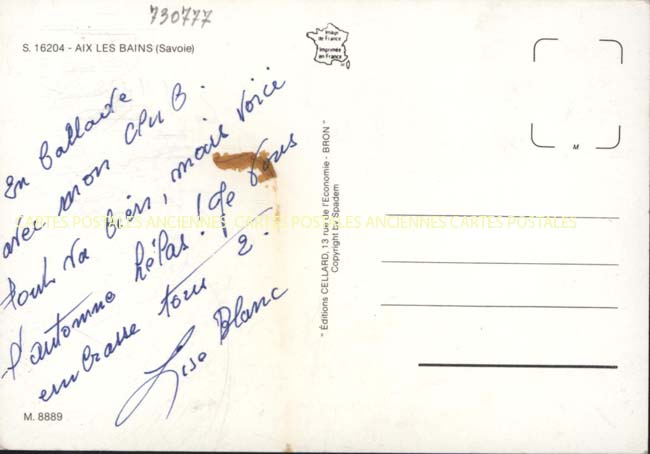 730777
S. 16204 - AIX LES BAINS (Savoie)
Image
de France
Imprimée
en France
En ballade
avec mon club.
Tout va bien, mais voici
l'automne hélas! Je vous
embrasse tous 2.
Lise Blanc
M. 8889
" Éditions CELLARD, 13 rue de l'Economie - BRON "
Copyright by Spadem
M
CARTES POSTALES ANCIENNES CARTES POSTALES ANCIENNES CARTES POSTALES